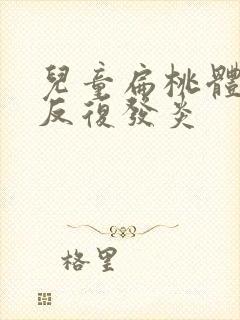 兒童扁桃體
反復發炎
格里